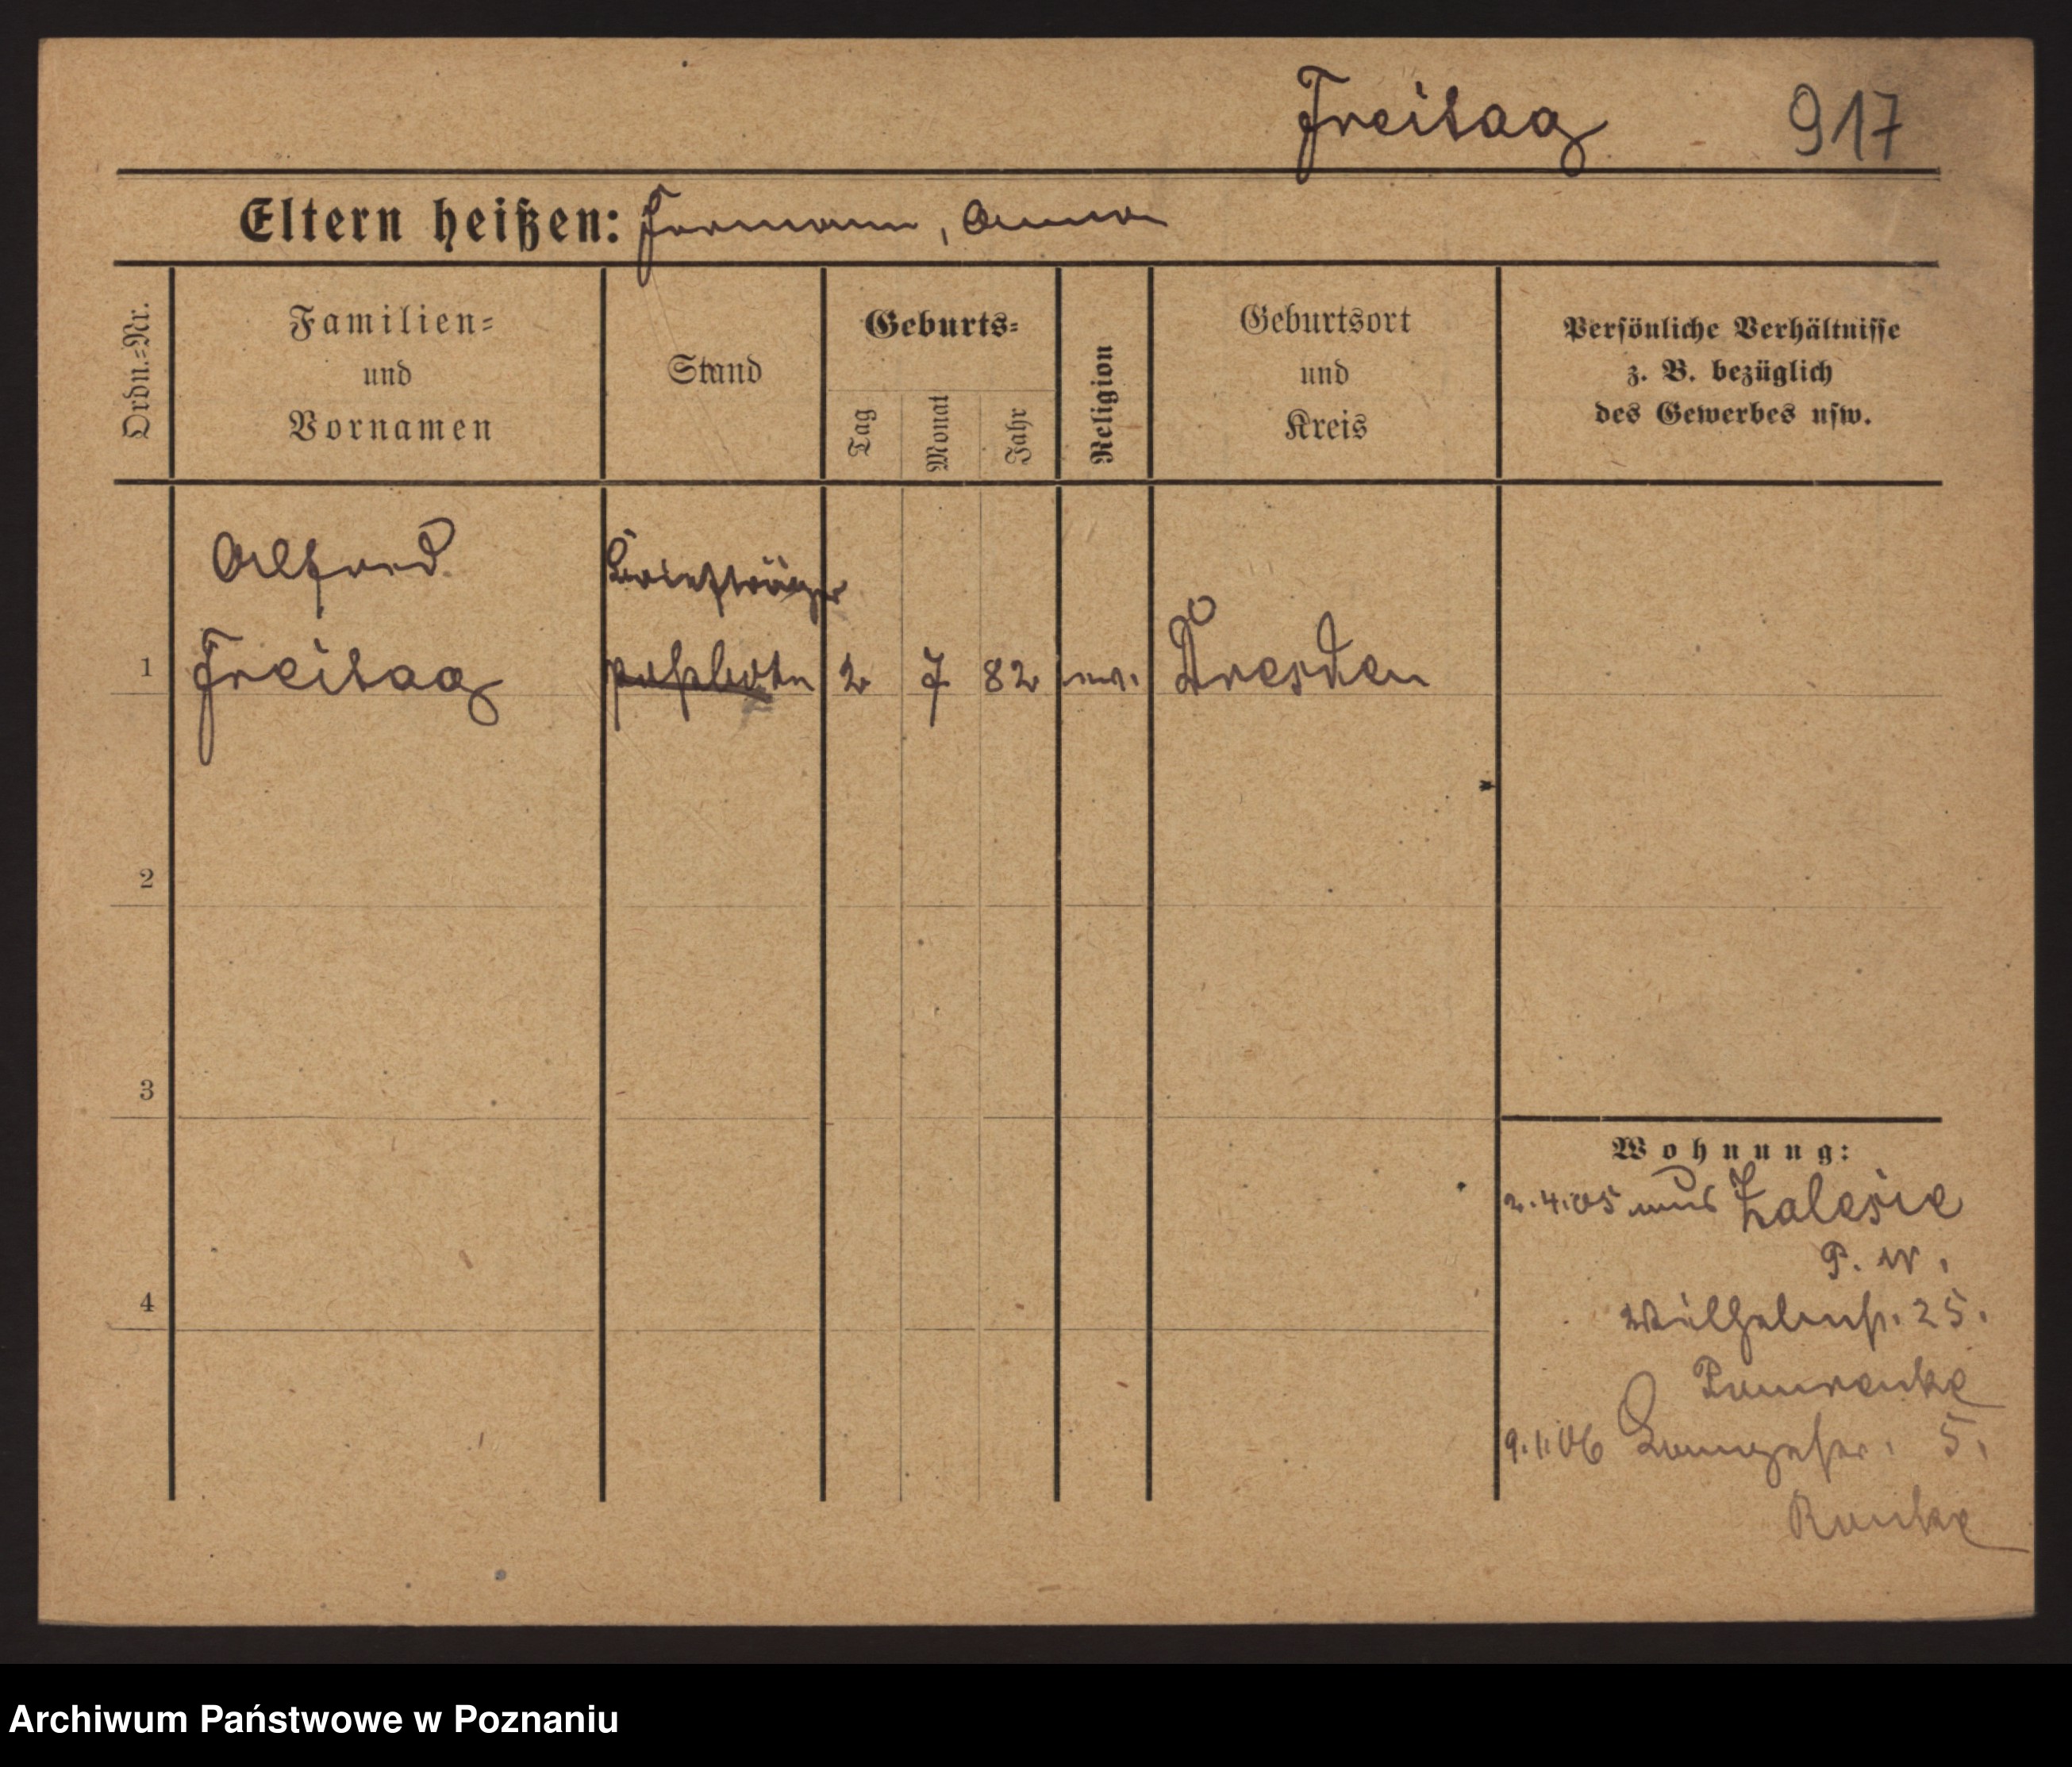 Freitag 917
Eltern heißen: Hermann, Anna
Ordn.=Nr.
Familien=
und
Vornamen
Stand
Geburts=
Tag
Monat
Jahr
Religion
Geburtsort
und
Kreis
Persönliche Verhältnisse
z. B. bezüglich
des Gewerbes usw.
Alfred Briefträger
1 Freitag Postbote 2 7 82 ev. Dresden
2
3
Wohnung:
2.4.05 aus Zalesie
P. W.
4 Wilhelmstr. 25.
Pomrenke
9.1.06 5.
Archiwum Państwowe w Poznaniu